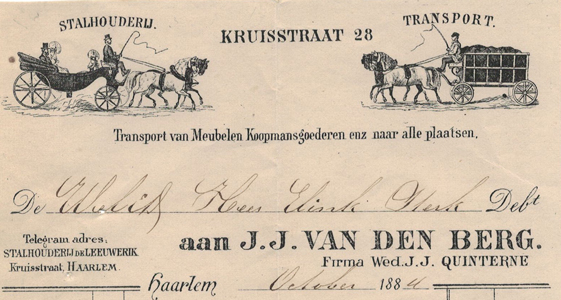 STALHOUDERIJ.
KRUISSTRAAT 28
TRANSPORT.
Transport van Meubelen Koopmansgoederen enz naar alle plaatsen.
De Heer Debt
Telegram adres:
STALHOUDERIJ DE LEEUWERIK
Kruisstraat, HAARLEM.
aan J.J. VAN DEN BERG.
Firma Wed. J.J. QUINTERNE
Haarlem October 1884